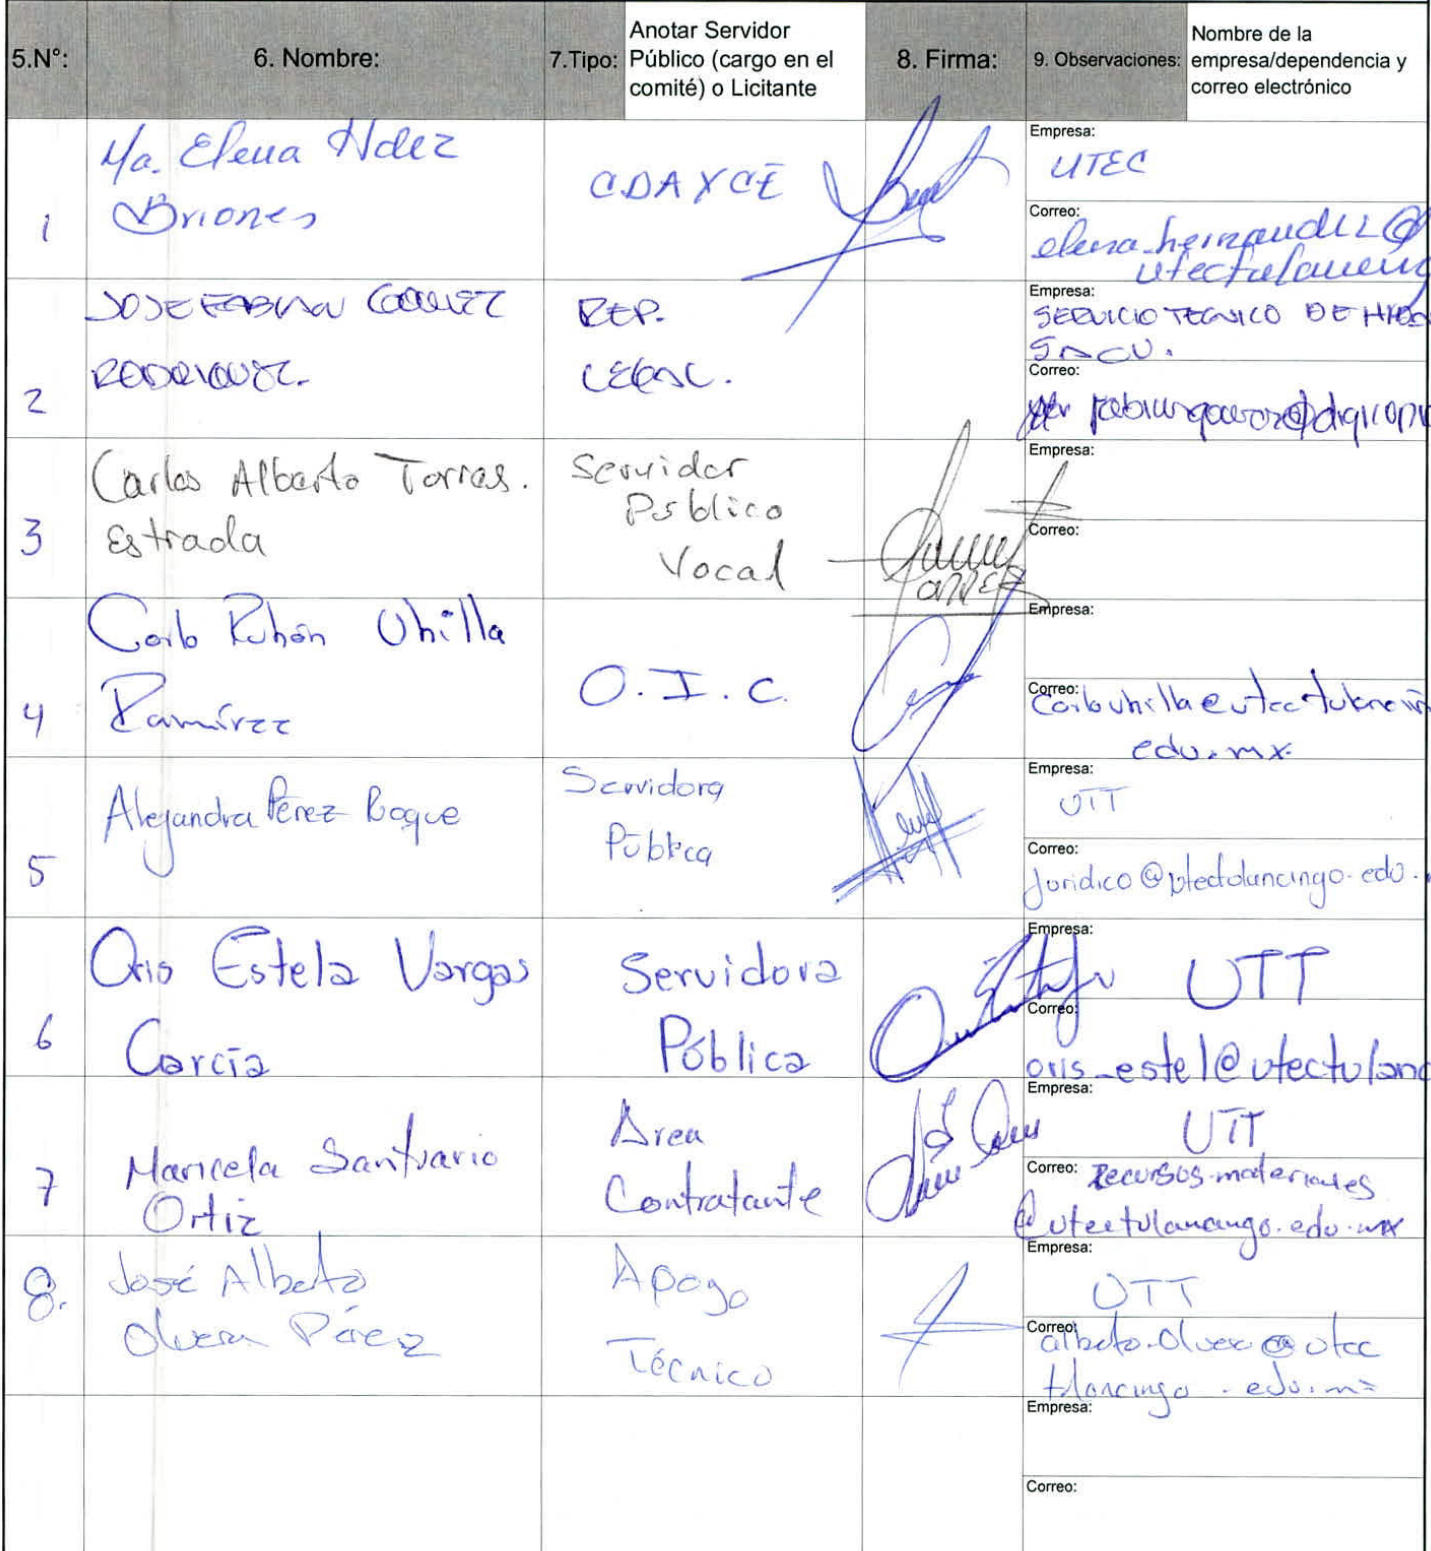 5.N°:
6. Nombre:
7.Tipo:
Anotar Servidor
Público (cargo en el
comité) o Licitante
8. Firma:
9. Observaciones:
Nombre de la
empresa/dependencia y
correo electrónico
1
Ma. Elena Hdez
Briones
CDAYCE
Empresa:
UTEC
Correo:
elena_hernandez@
utectulancing
2
JOSE FABIAN
RODRIGUEZ.
REP.
LEGAL.
Empresa:
SERVICIO TECNICO DE
Correo:
3
Carlos Alberto Torres.
Estrada
Servidor
Público
Vocal
Empresa:
Correo:
4
Carlo Rubén Uhilla
Ramírez
O.I.C.
Empresa:
Correo:
carlouhilla@utectulancin
edu.mx.
5
Alejandra Pérez Roque
Servidora
Pública
Empresa:
UTT
Correo:
juridico@utectulancingo.edu.
6
Oris Estela Vargas
García
Servidora
Pública
Empresa:
UTT
Correo:
oris_estel@utectulanc
7
Maricela Santuario
Ortiz
Area
Contratante
Empresa:
UTT
Correo: Recursos-materiales
@utectulancingo.edu.mx
8.
José Alberto
Olvera Pérez
Apoyo
Técnico
Empresa:
UTT
Correo:
alberto.olvera@utec
tulancingo.edu.mx
Empresa:
Correo: